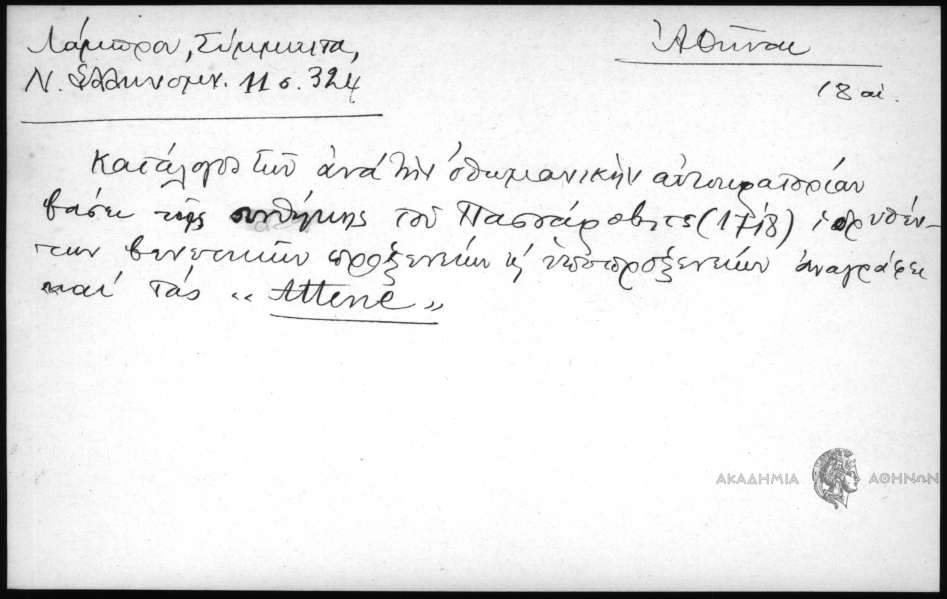 Λάμπρου, Σύμμικτα,
Ν. Ἑλληνομν. 11 σ. 324
Ἀθῆναι
18 αἰ.
Κατάλογος τῶν ἀνὰ τὴν ὀθωμανικὴν αὐτοκρατορίαν
βάσει τῆς συνθήκης τοῦ Πασσάροβιτς (1718) ἱδρυθέν-
των βενετικῶν προξενείων κ' ὑποπροξενείων ἀναγράφει
καὶ τὰς "Attene"
ΑΚΑΔΗΜΙΑ ΑΘΗΝΩΝ